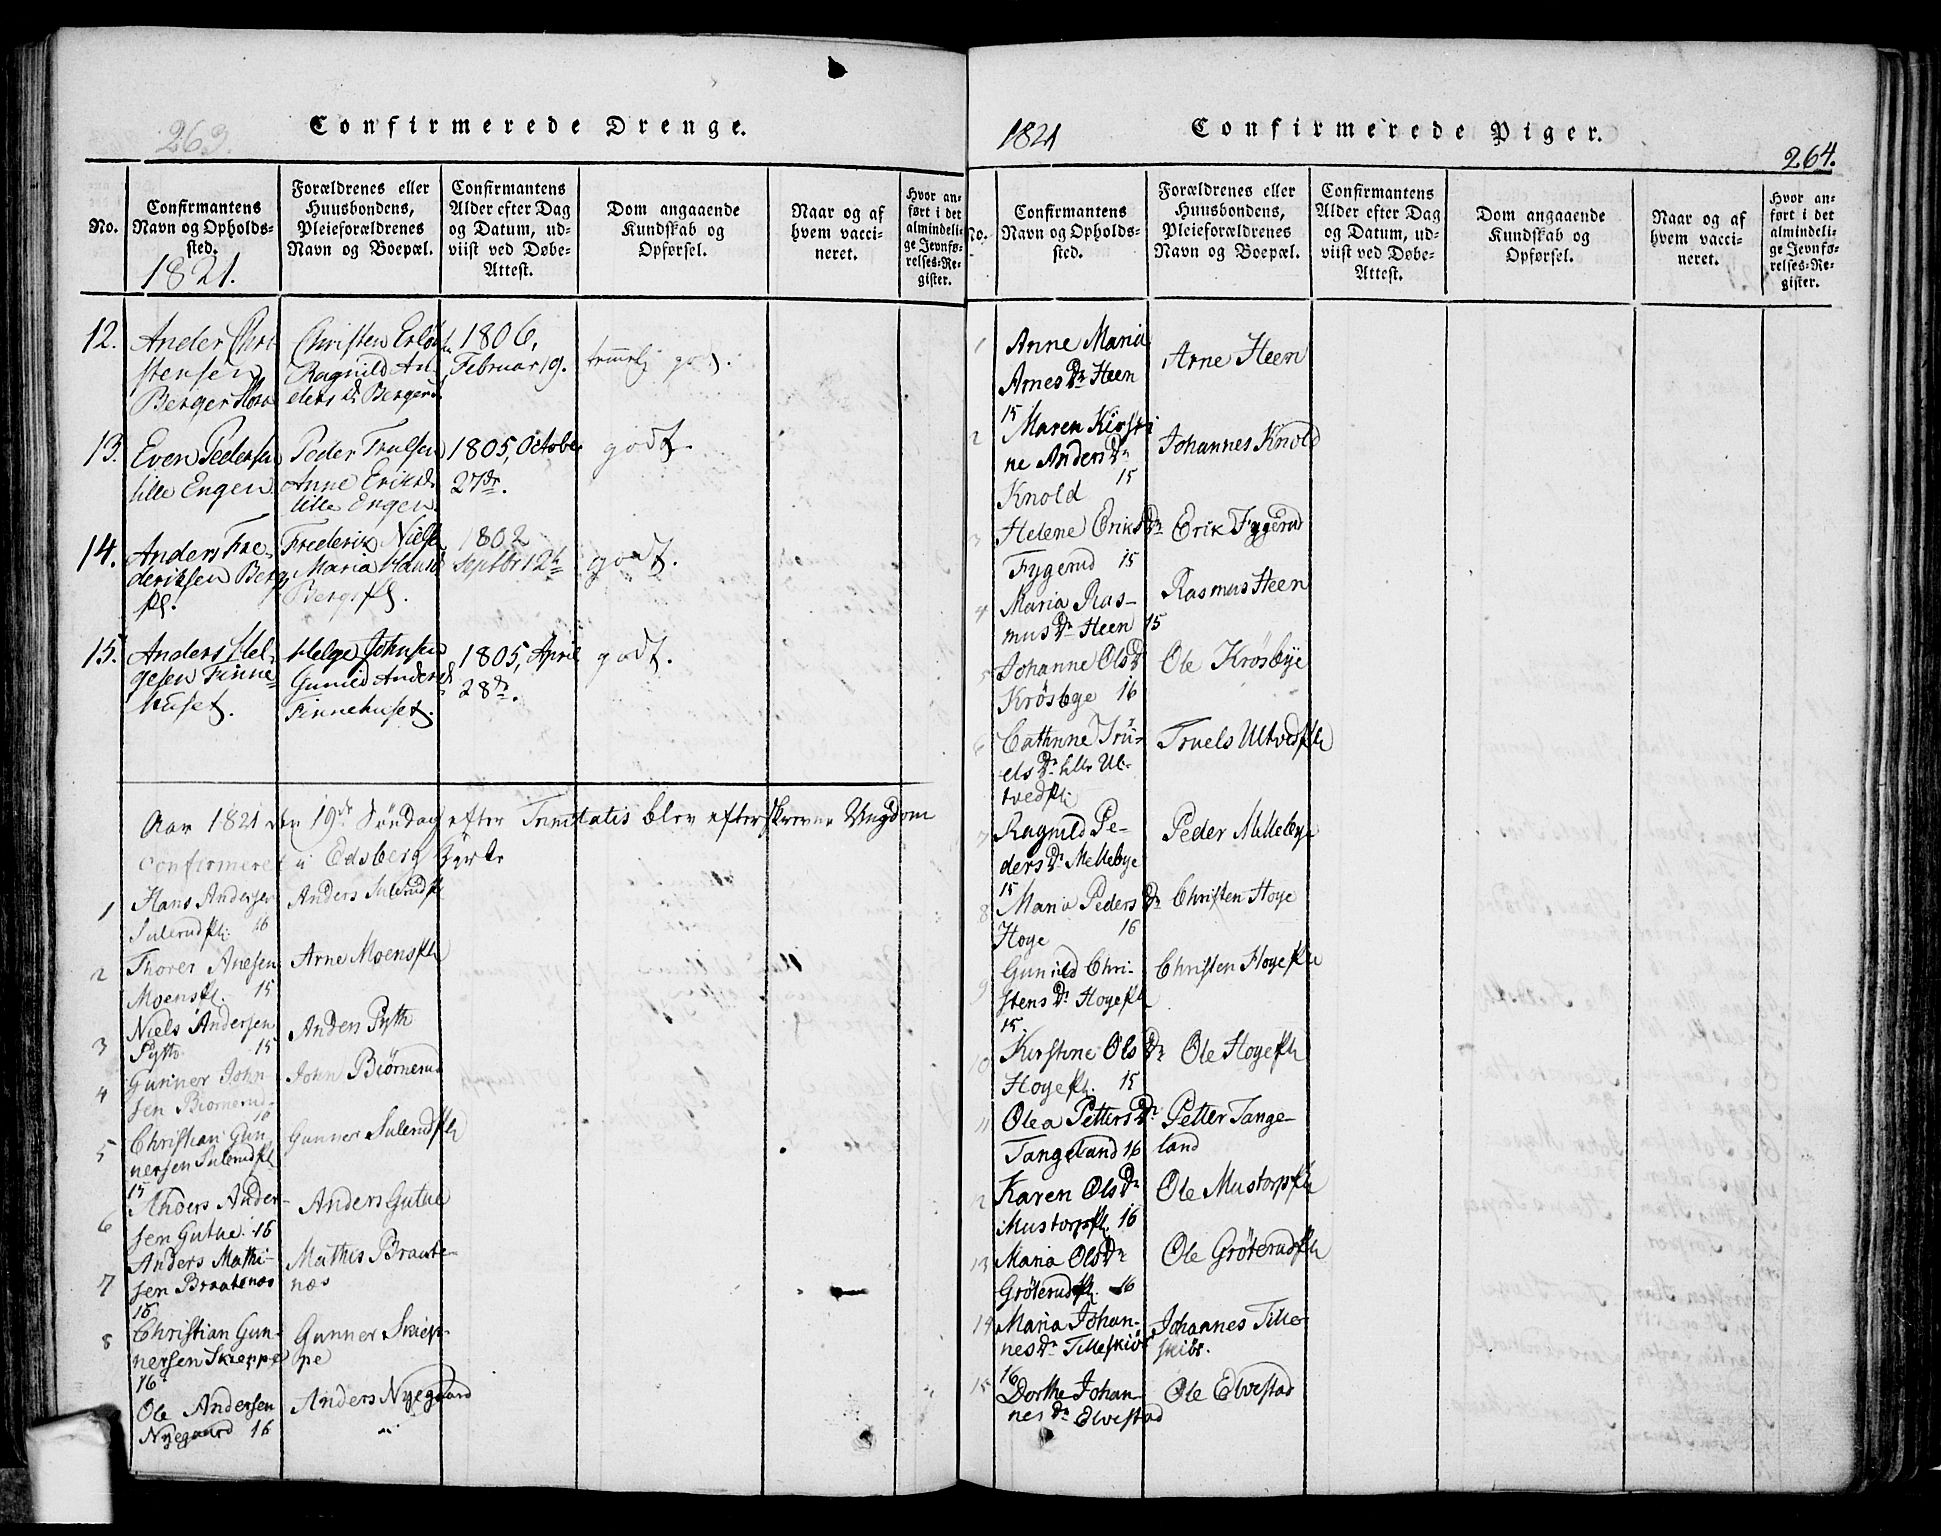 263.
Confirmerede Drenge.
No.
Confirmantens
Navn og Opholds-
sted.
1821.
Forældrenes eller
Huusbondens,
Pleieforældrenes
Navn og Boepæl.
Confirmantens
Alder efter Dag
og Datum, ud-
viist ved Døbe-
Attest.
Dom angaaende
Kundskab og
Opførsel.
Naar og af
hvem vacci-
neret.
Hvor an-
ført i det
almindeli-
ge Jevnfø-
relses-Re-
gister.
12.
Ander Chri
stensen
Berger
Christen
Ragnild An-
ders Dr Berger
1806,
Februar 19.
temmelig godt.
13.
Even Pedersen
lille Engen
Peder Trulsen
Anne Eriksdr
lille Engen.
1805, October
27de.
godt.
14.
Anders Fre-
deriksen Berg
pl.
Frederik Nielsen
Maria Hansd
Bergspl.
1802
Septbr 12te
godt.
15.
Anders Hel-
gesen Finne-
huset.
Helge Johnsen
Gunild Andersd
Finnehuset.
1805, April
28de.
godt.
Aar 1821 den 19de Søndag efter Trinitatis blev efterskrevne Ungdom
confirmeret i Edsberg Kirke
1
Hans Andersen
Sulerudpl: 16
Anders Sulerudpl
2
Thorer Anesen
Moenspl. 15
Arne Moenspl
3
Niels Andersen
Pytt 15
Anders Pytt
4
Gunner John
sen Biørnerud
16
John Biørnerud
5
Christian Gun
nersen Sulerudpl
15
Gunner Sulerudpl
6
Anders Ander-
sen Gutue. 16
Anders Gutue
7
Anders Mathi-
sen Braatenæs
16
Mathis Braate-
næs
8
Christian Gun-
nersen Skieppe
16
Gunner Skiep-
pe
Ole Andersen
Nyegaard 16
Anders Nyegaard
1821
Confirmerede Piger.
264.
No.
Confirmantens
Navn og Opholds-
sted.
Forældrenes eller
Huusbondens,
Pleieforældrenes
Navn og Boepæl.
Confirmantens
Alder efter Dag
og Datum, ud-
viist ved Døbe-
Attest.
Dom angaaende
Kundskab og
Opførsel.
Naar og af
hvem vacci-
neret.
Hvor an-
ført i det
almindeli-
ge Jevnfø-
relses-Re-
gister.
1
Anne Maria
Arnes Dr Heen
15
Arne Heen
2
Maren Kirsti
ne Anders Dr
Knold 15
Johannes Knold
3
Helene Eriks Dr
Fygerud 15
Erik Fygerud
4
Maria Ras-
mus Dr Heen 15
Rasmus Heen
5
Johanne Ols Dr
Krøsbye 16
Ole Krøsbye
6
Cathrine Tru-
els Dr lille Ul-
tvedpl:
Truels Ultvedpl
7
Ragnild Pe-
ders Dr Mellebye
15
Peder Mellebye
8
Maria Peders Dr
Hoye 16
Christen Hoye
9
Gunild Chri-
stens Dr Hoyepl
15.
Christen Hoyepl
10
Kirstine Ols Dr
Hoyepl. 15
Ole Hoyepl
11
Olea Petters Dr
Tangeland 16
Petter Tange-
land
2
Karen Ols Dr
Mustorpspl. 16
Ole Mustorpspl
13
Maria Ols Dr
Grøterudpl. 16
Ole Grøterudpl
14
Maria Johan-
nes Dr Tilleskiør
16
Johannes Tille-
skiør.
15
Dorthe Johan
nes Dr Elvestad
Ole Elvestad